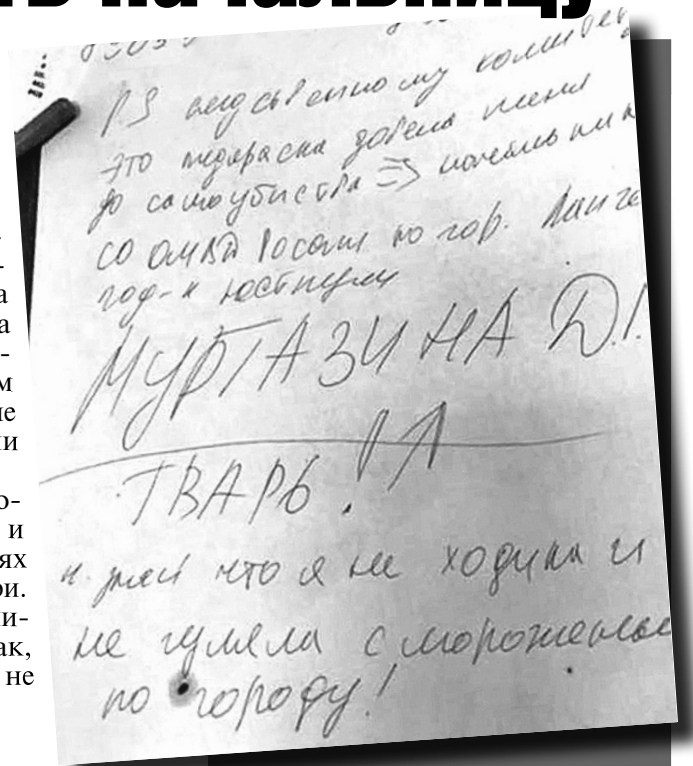 ть начальницу
PS следственному комитет
это пидараска довела меня
до самоубиства => начальник
СО ОМВД России по гор. Ланге
юстиции
МУРТАЗИНА Д.!.
ТВАРЬ!
и знай что я не ходила и
не гуляла с мороженым
по городу!